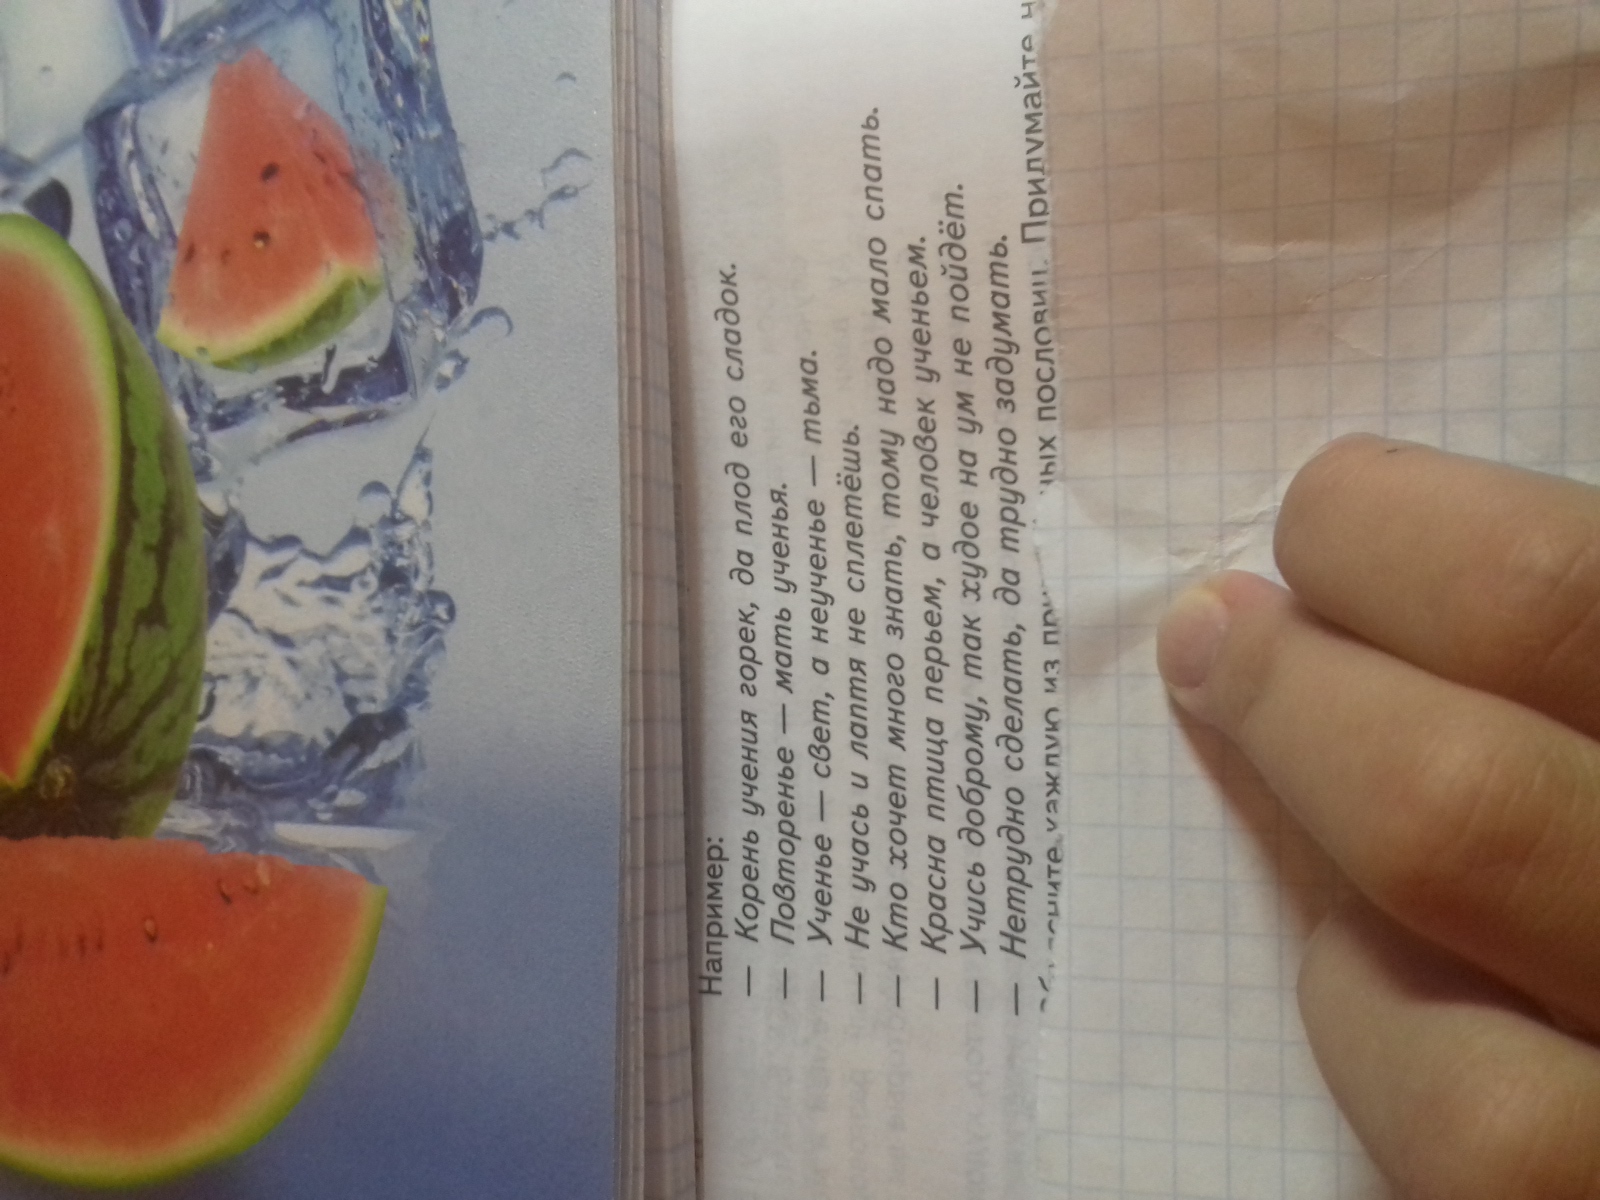 Например:
— Корень учения горек, да плод его сладок.
— Повторенье — мать ученья.
— Ученье — свет, а неученье — тьма.
— Не учась и лаптя не сплетёшь.
— Кто хочет много знать, тому надо мало спать.
— Красна птица перьем, а человек ученьем.
— Учись доброму, так худое на ум не пойдёт.
— Нетрудно сделать, да трудно задумать.
каждую из пословиц. Придумайте